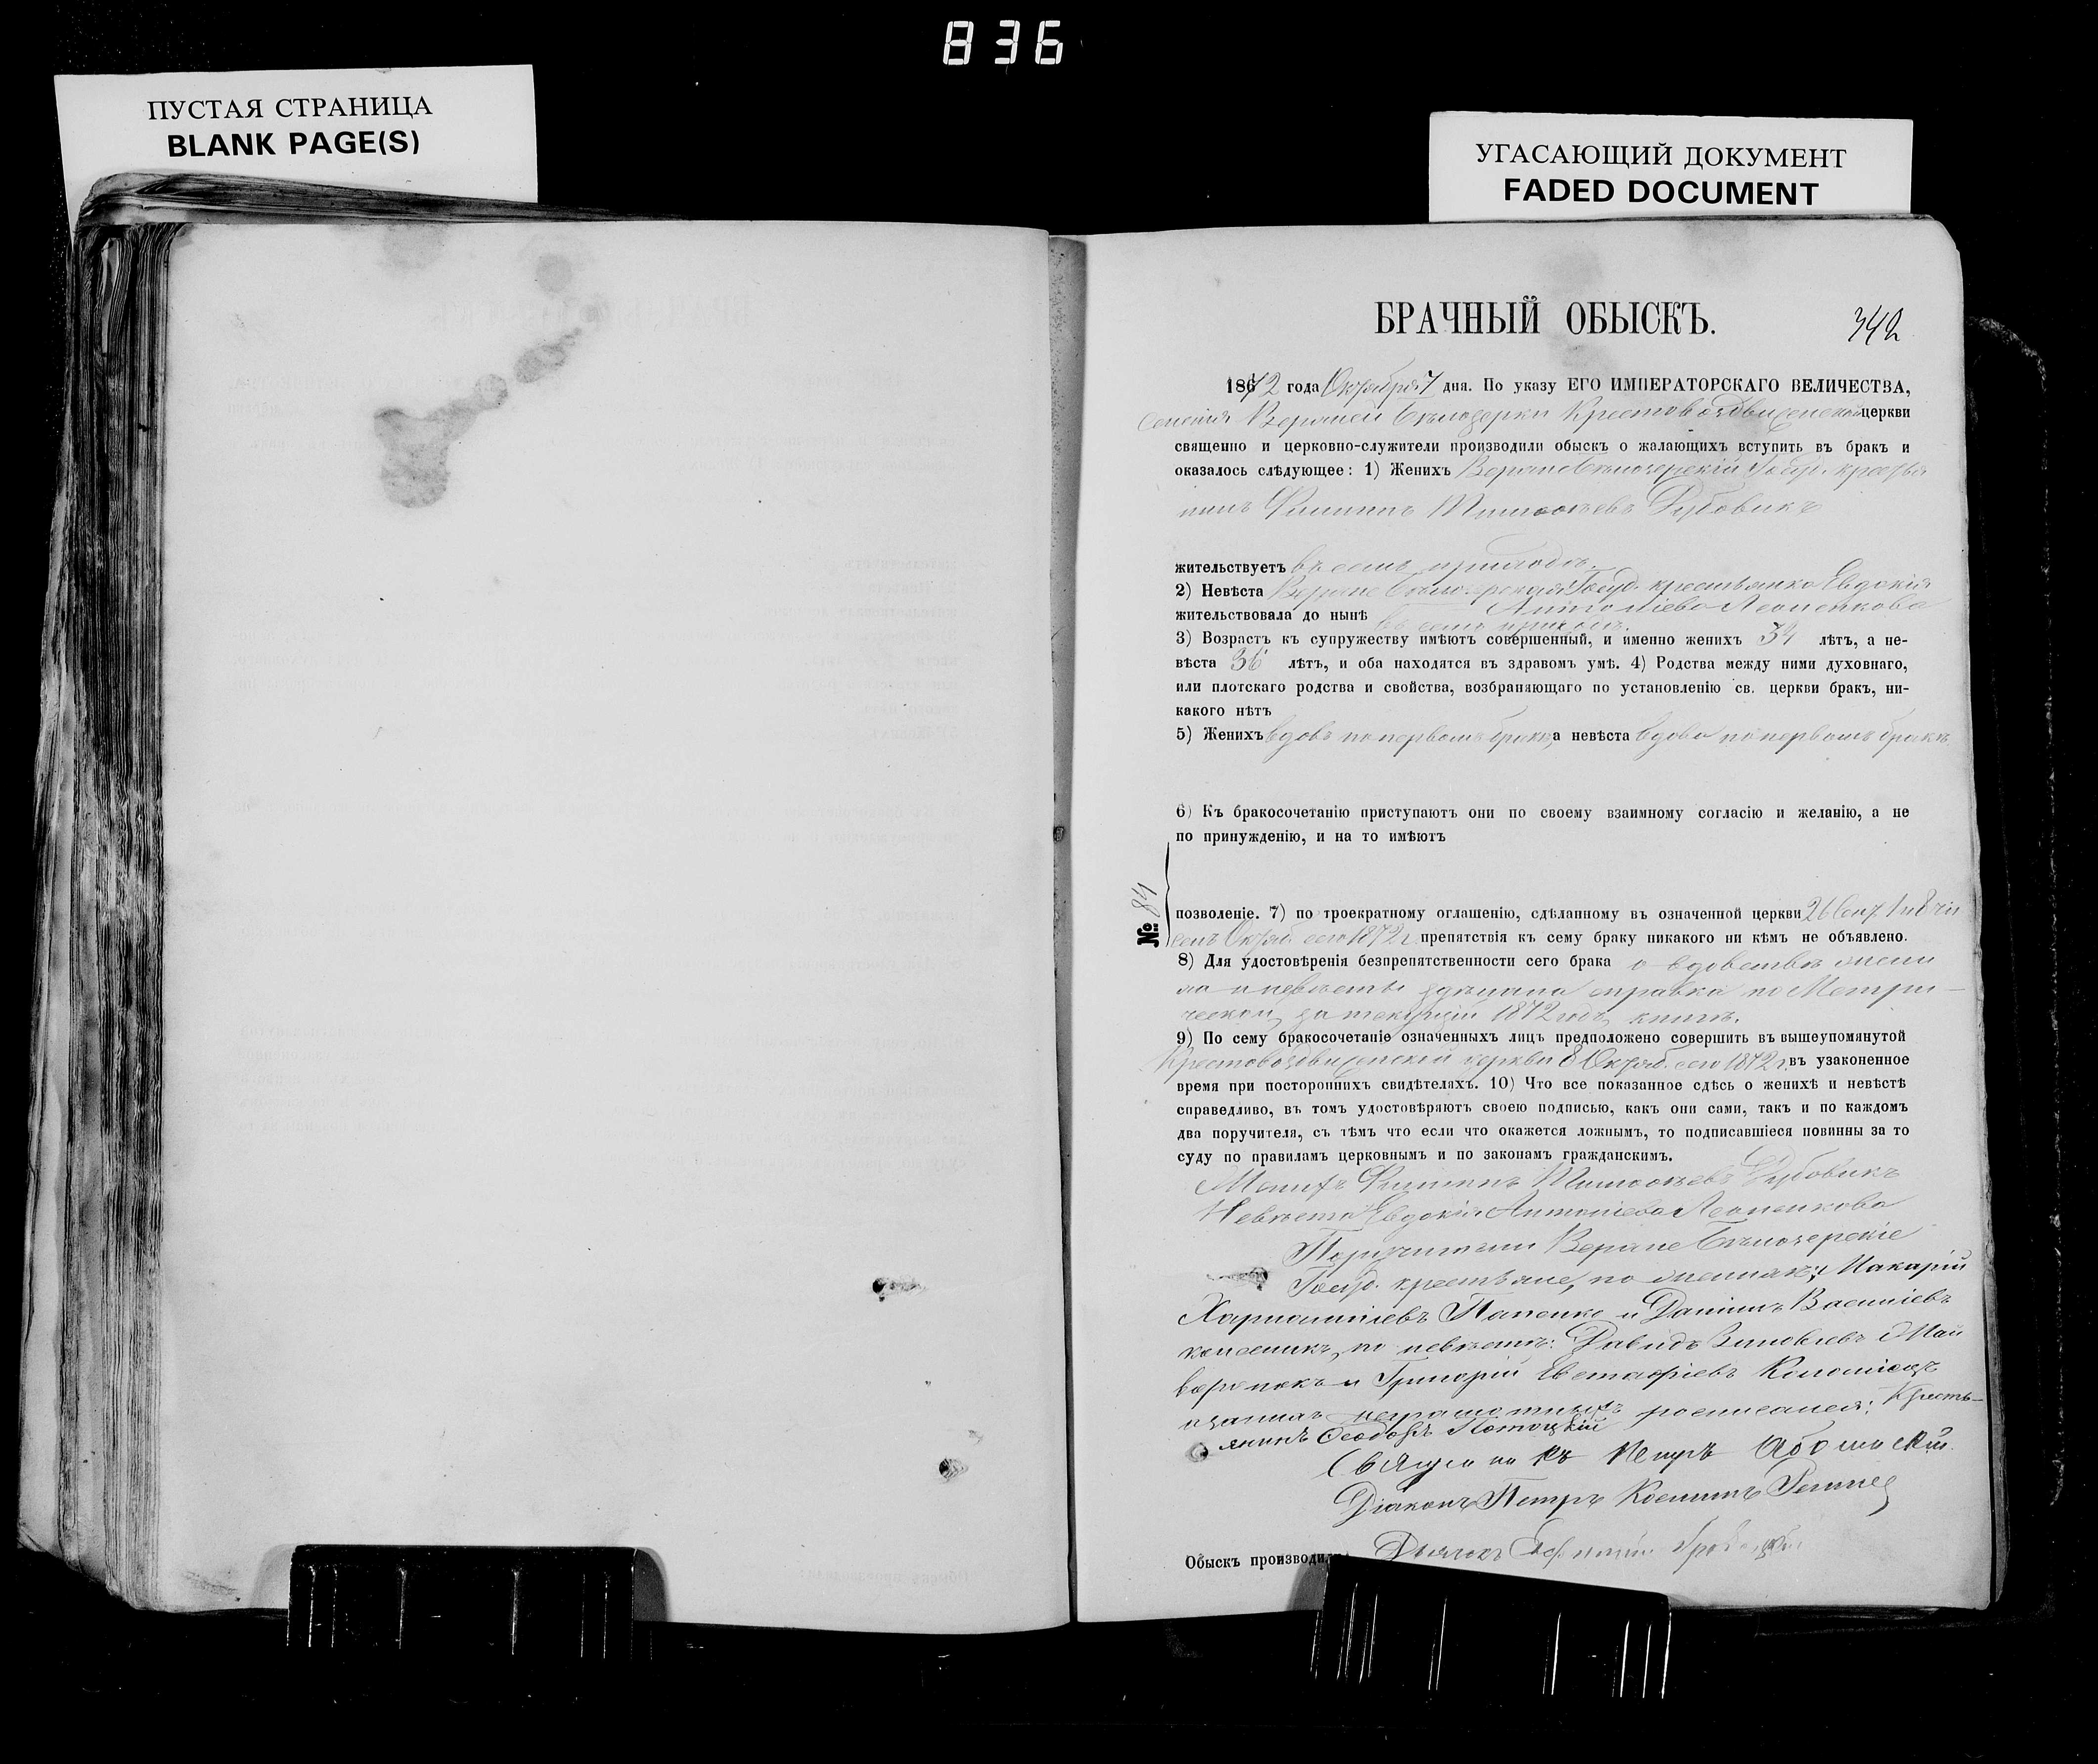 836
ПУСТАЯ СТРАНИЦА
BLANK PAGE(S)
УГАСАЮЩИЙ ДОКУМЕНТ
FADED DOCUMENT
БРАЧНЫЙ ОБЫСКЪ.
342
1872 года Октября 7 дня. По указу ЕГО ИМПЕРАТОРСКАГО ВЕЛИЧЕСТВА,
селенія Верхней Бѣлозерки Крестовоздвиженской церкви
священно и церковно-служители производили обыскъ о жалающихъ вступить въ бракъ и
оказалось слѣдующее: 1) Женихъ Верхне Бѣлозерскій Госуд. крестья
нинъ Филиппъ Тимооѳевъ Дубовикъ
жительствуетъ въ семъ приходѣ.
2) Невѣста Верхне Бѣлозерская Госуд. крестьянка Евдокія
Антоніева Леоненкова
жительствовала до нынѣ въ семъ приходѣ.
3) Возрастъ къ супружеству имѣютъ совершенный, и именно женихъ 34 лѣтъ, а не-
вѣста 36 лѣтъ, и оба находятся въ здравомъ умѣ. 4) Родства между ними духовнаго,
или плотскаго родства и свойства, возбраняющаго по установленію св. церкви бракъ, ни-
какого нѣтъ
5) Женихъ вдовъ по первомъ бракѣ, а невѣста вдова по первомъ бракѣ
6) Къ бракосочетанію приступаютъ они по своему взаимному согласію и желанію, а не
по принужденію, и на то имѣютъ
№ 84
позволеніе. 7) по троекратному оглашенію, сдѣланному въ означенной церкви 26 Сент. 1 и 8 чи
селъ Октяб. сего 1872 г. препятствія къ сему браку никакого ни кѣмъ не объявлено.
8) Для удостовѣренія безпрепятственности сего брака о вдовствѣ жени
ха и невѣсты сдѣлана справка по Метри-
ческой за текущій 1872 годъ книгѣ.
9) По сему бракосочетаніе означенныхъ лицъ предположено совершить въ вышеупомянутой
Крестовоздвиженской церкви 8 Октяб. сего 1872 г. въ узаконенное
время при постороннихъ свидѣтеляхъ. 10) Что все показанное сдѣсь о женихѣ и невѣстѣ
справедливо, въ томъ удостовѣряютъ своею подписью, какъ они сами, такъ и по каждомъ
два поручителя, съ тѣмъ что если что окажется ложнымъ, то подписавшіеся повинны за то
суду по правиламъ церковнымъ и по законамъ гражданскимъ.
Женихъ Филиппъ Тимооѳевъ Дубовикъ
Невѣста Евдокія Антоніева Леоненкова
Поручители Верхне Бѣлозерскіе
Госуд. крестьяне, по женихѣ: Макарій
Харлампіевъ Папенко и Даніилъ Василіевъ
колесникъ, по невѣстѣ: Давидъ Зиновіевъ
и Григорій Евстафіевъ Коломіецъ
неграмотныхъ росписался: Кресть-
янинъ Ѳеодоръ Потоцкій
Священникъ Петръ
Діаконъ Петръ Косминъ
Обыскъ производили: Дьячокъ